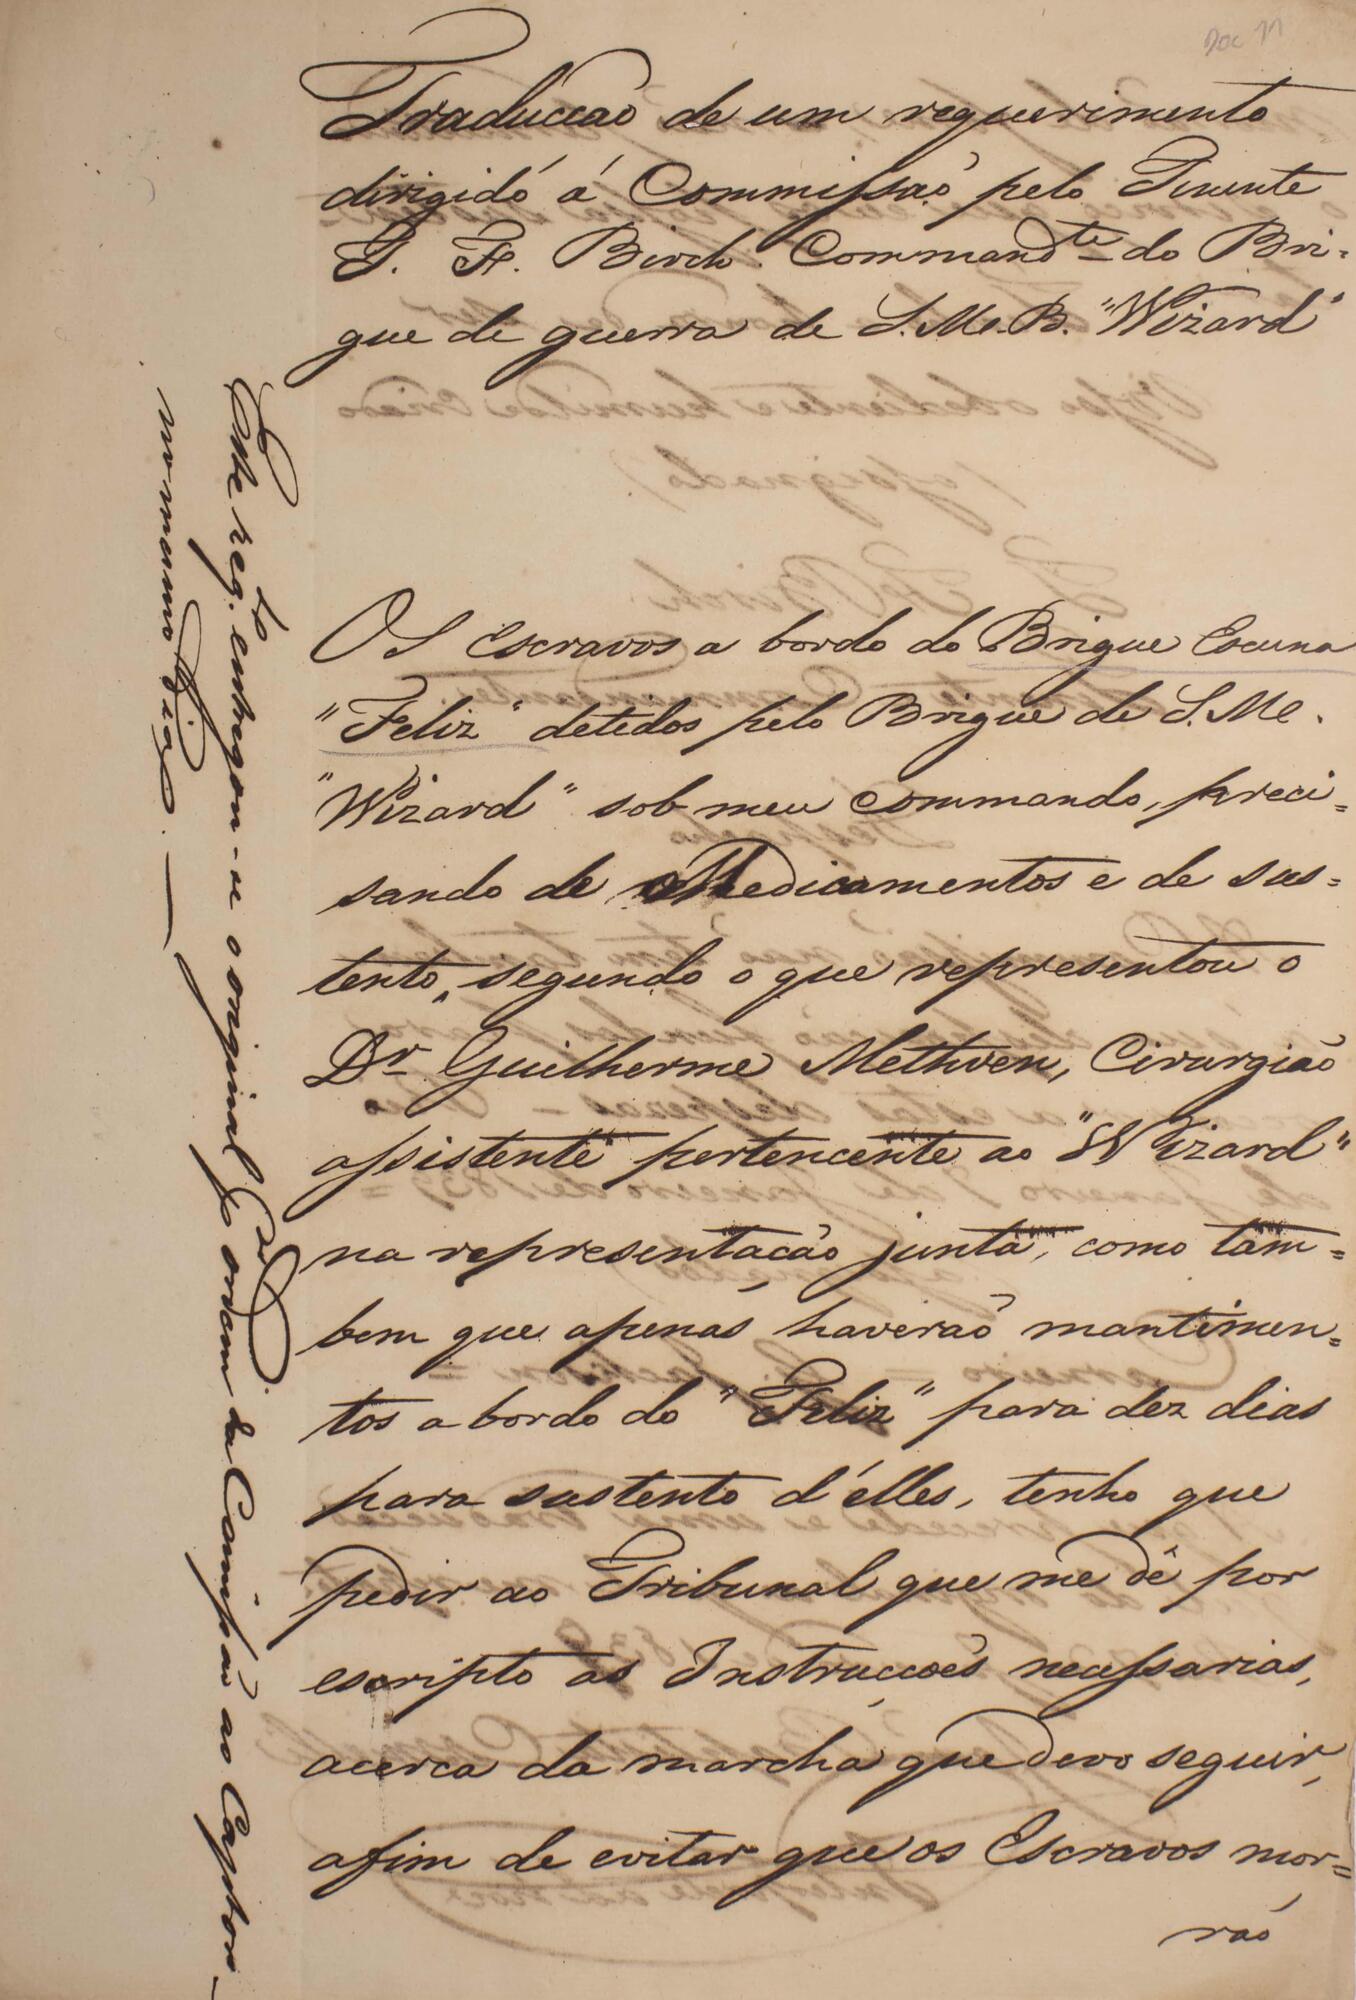 Doc 11
Traducção de um requerimento
dirigido á Commissaõ pelo Tenente
T. F. Birch. Command.te do Bri=
gue de guerra de S. M. B. "Wizard"
Os Escravos a bordo do Brigue Escuna
"Feliz" detidos pelo Brigue de S. M.
"Wizard" sob meu commando, preci=
sando de Medicamentos e de sus=
tento, segundo o que representou o
Dr Guilherme Methven, Cirurgiaõ
assistente pertencente ao "Wizard"
na representaçaõ junta, como tam=
bem que apenas haveraõ mantimen=
tos a bordo do "Feliz" para dez dias
para sustento d'élles, tenho que
pedir ao Tribunal que me dê por
escripto as Instrucçoẽs necessarias,
acerca da marcha que devo seguir,
afim de evitar que os Escravos mor=
raõ
Este req.to entregou-se o original p.r ordem da Comissaõ ao Captor
no mesmo dia.